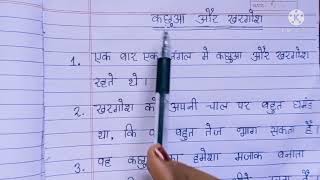 कछुआ और खरगोश
1. एक बार एक जंगल मे कछुआ और खरगोश
रहते थे।
2. खरगोश को अपनी चाल पर बहुत घमंड
था, कि वह बहुत तेज भाग सकता है।
3. वह कछुए का हमेशा मजाक बनाता